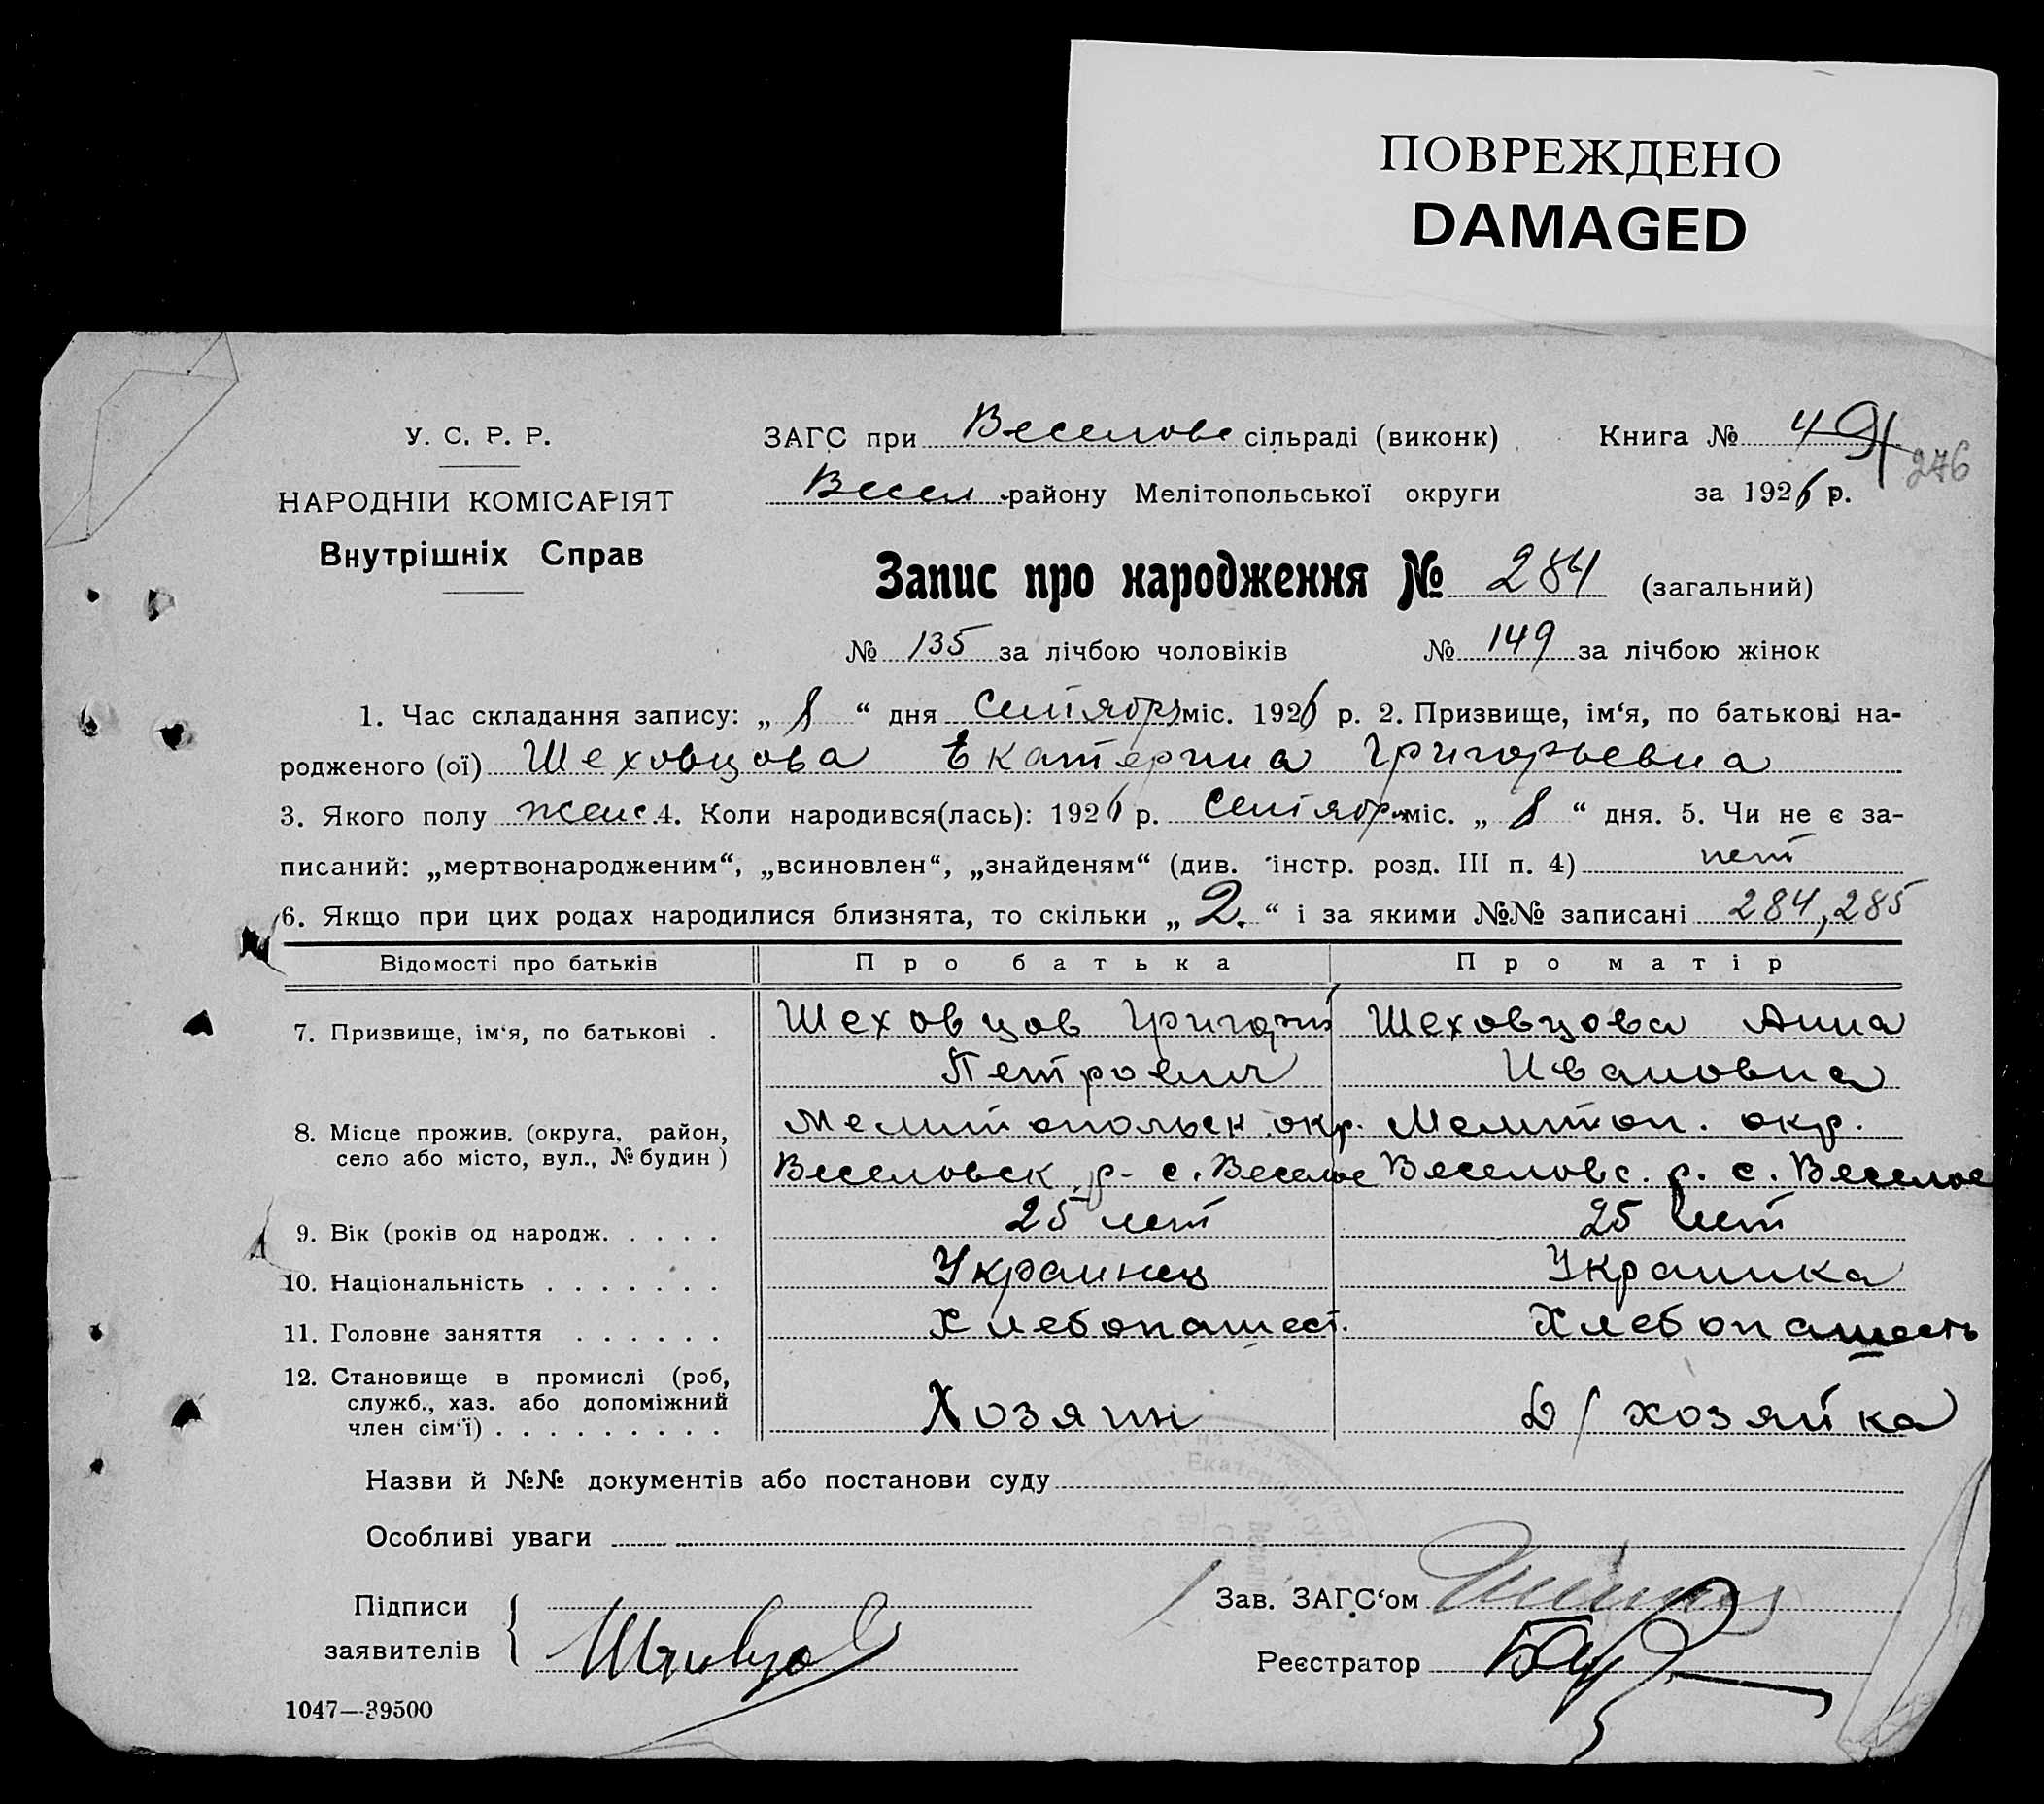 ПОВРЕЖДЕНО
DAMAGED
У. С. Р. Р.
НАРОДНІЙ КОМІСАРІЯТ
Внутрішніх Справ
ЗАГС при Веселовс сільраді (виконк)
Весел. району Мелітопольської округи
Книга № 4
276
за 1926 р.
Запис про народження № 284 (загальний)
№ 135 за лічбою чоловіків № 149 за лічбою жінок
1. Час складання запису: „ 8 “ дня Сентября міс. 1926 р. 2. Призвище, ім‘я, по батькові на-
родженого (ої) Шеховцова Екатерина Григорьевна
3. Якого полу женс. 4. Коли народився(лась): 1926 р. Сентября міс. „ 8 “ дня. 5. Чи не є за-
писаний: „мертвонародженим“, „всиновлен“, „знайденям“ (див. інстр. розд. III п. 4) нет
6. Якщо при цих родах народилися близнята, то скільки „ 2. “ і за якими №№ записані 284, 285
Відомості про батьків Про батька Про матір
7. Призвище, ім‘я, по батькові . Шеховцов Григорий Шеховцова Анна
Петрович Ивановна
8. Місце прожив. (округа, район, Мелитопольск. окр. Мелитоп. окр.
село або місто, вул., № будин) Веселовск. р. с. Веселое Веселовс. р. с. Веселое
9. Вік (років од народж. . . . . 25 лет 25 лет
10. Національність . . . . . . . Украинец Украинка
11. Головне заняття . . . . . . Хлебопашест. Хлебопашесть
12. Становище в промислі (роб,
служб., хаз. або допоміжний Хозяин Д/хозяйка
член сім‘ї) . . . . . . . . .
Назви й №№ документів або постанови суду
Особливі уваги
Підписи
заявителів
Зав. ЗАГС‘ом
Реєстратор
1047—39500